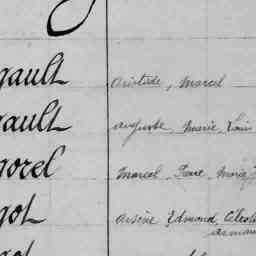 gault Aristide, Marcel
gault Auguste, Marie, Louis
gorel Marcel, Pierre, Marie
got Arsène Edmond, Céleste
got